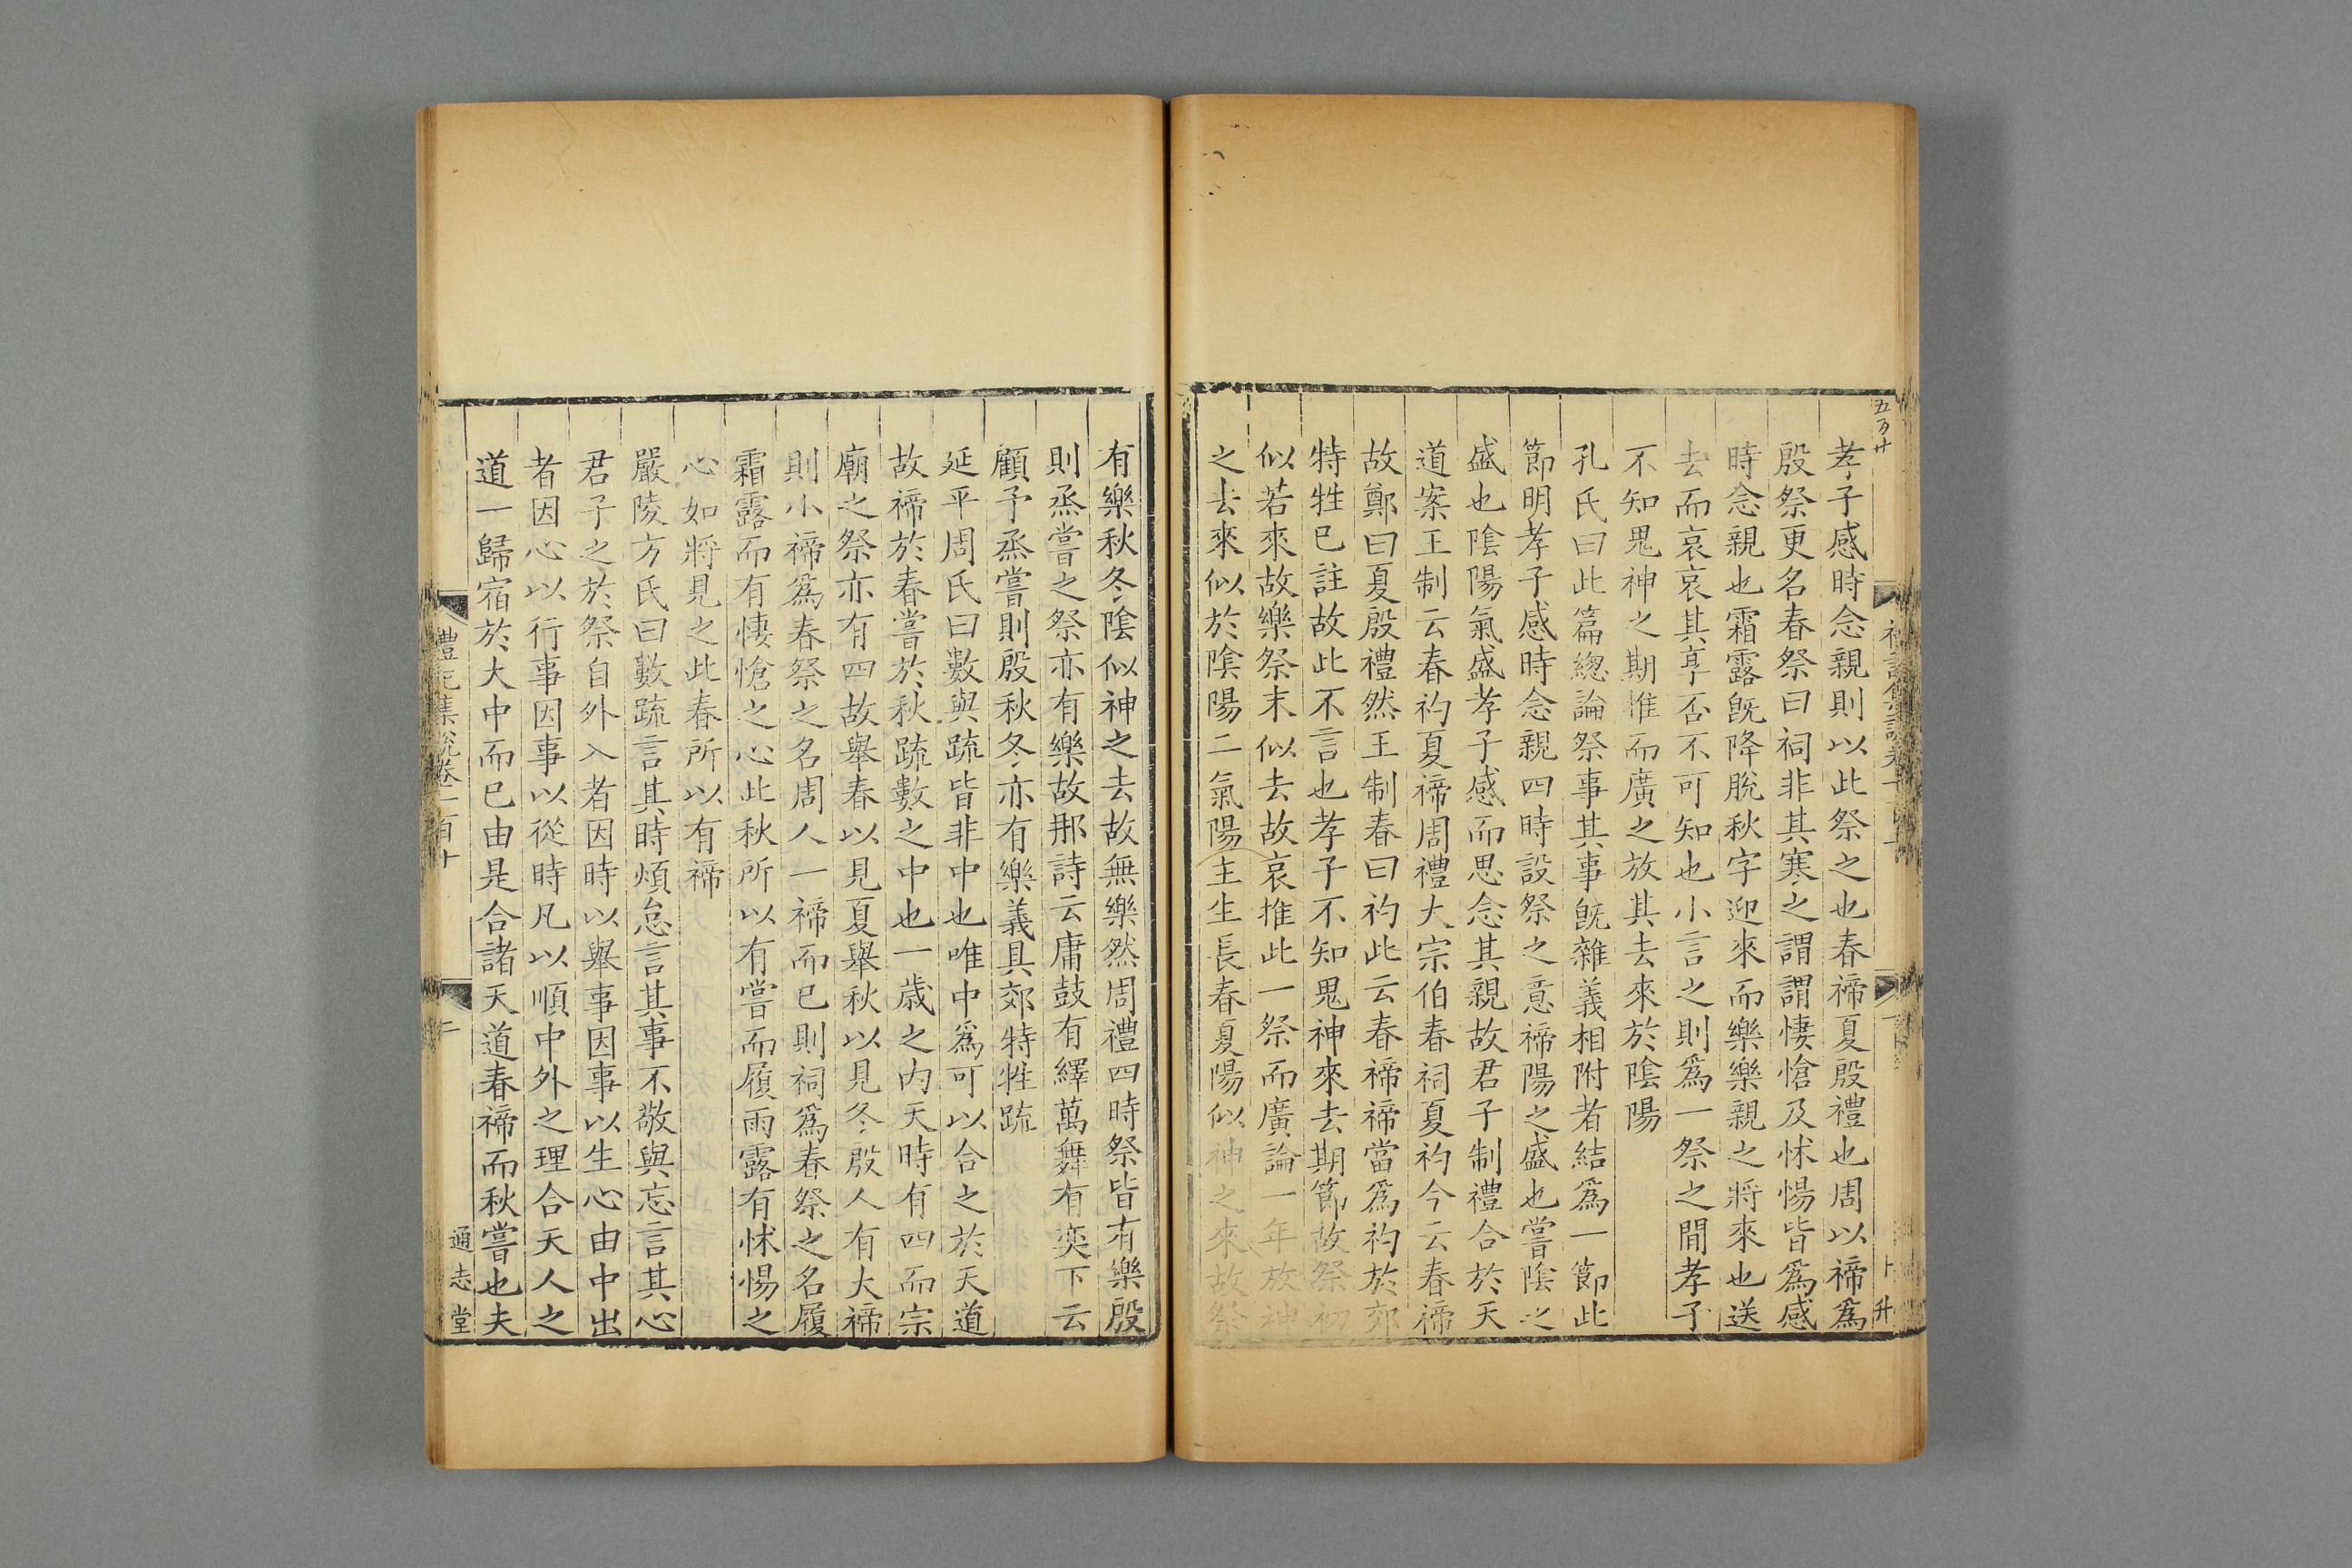 孝子感時念親則以此祭之也春禘夏殷禮也周以禘爲
殷祭更名春祭曰祠非其寒之謂謂悽愴及怵惕皆爲感
時念親也霜露旣降脫秋字迎來而樂樂親之將來也送
去而哀哀其享否不可知也小言之則爲一祭之間孝子
不知鬼神之期推而廣之放其去來於陰陽
孔氏曰此篇總論祭事其事旣雜義相附者結爲一節此
節明孝子感時念親四時設祭之意禘陽之盛也嘗陰之
盛也陰陽氣盛孝子感而思念其親故君子制禮合於天
道案王制云春礿夏禘周禮大宗伯春祠夏礿今云春禘
故鄭曰夏殷禮然王制春曰礿此云春禘禘當爲礿於郊
特牲已註故此不言也孝子不知鬼神來去期節故祭初
似若來故樂祭末似去故哀推此一祭而廣論一年放神
之去來似於陰陽二氣陽主生長春夏陽似神之來故祭
有樂秋冬陰似神之去故無樂然周禮四時祭皆有樂殷
則烝嘗之祭亦有樂故那詩云庸鼓有繹萬舞有奕下云
顧予烝嘗則殷秋冬亦有樂義具郊特牲疏
延平周氏曰數與疏皆非中也唯中爲可以合之於天道
故禘於春嘗於秋疏數之中也一歲之內天時有四而宗
廟之祭亦有四故舉春以見夏舉秋以見冬殷人有大禘
則小禘爲春祭之名周人一禘而已則祠爲春祭之名履
霜露而有悽愴之心此秋所以有嘗而履雨露有怵惕之
心如將見之此春所以有禘
嚴陵方氏曰數疏言其時煩怠言其事不敬與忘言其心
君子之於祭自外入者因時以舉事因事以生心由中出
者因心以行事因事以從時凡以順中外之理合天人之
道一歸宿於大中而已由是合諸天道春禘而秋嘗也夫
禮記集說卷一百十
二
通志堂